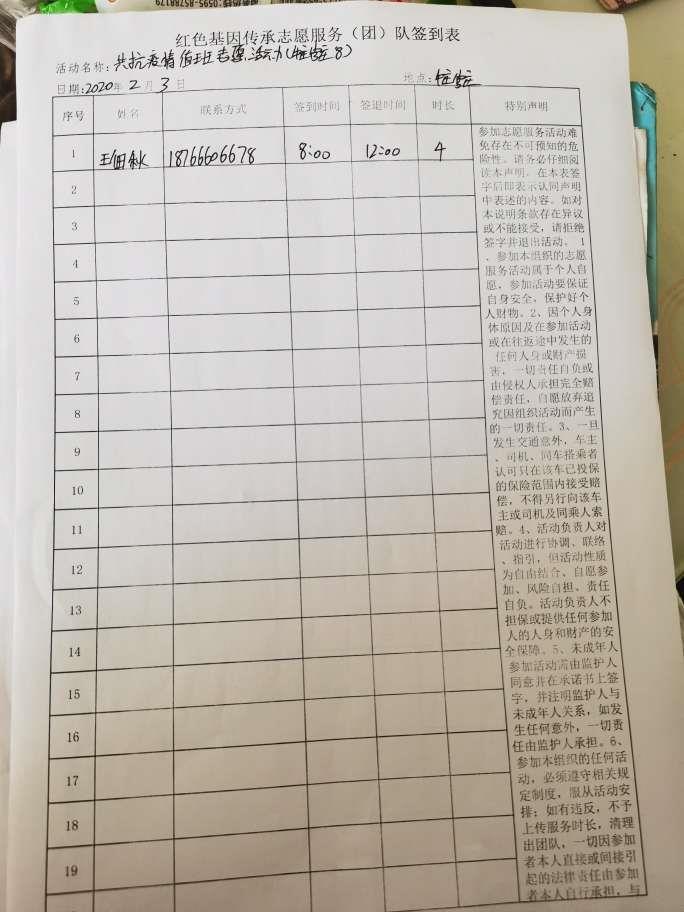 红色基因传承志愿服务（团）队签到表
活动名称：共抗疫情值班志愿活动
日期：2020年2月3日
地点：
序号 姓名 联系方式 签到时间 签退时间 时长 特别声明
1 18766606678 8:00 12:00 4
2
3
4
5
6
7
8
9
10
11
12
13
14
15
16
17
18
19
参加志愿服务活动难
免存在不可预知的危
险性。请务必仔细阅
读本声明。在本表签
字后即表示认同声明
中表述的内容。如对
本说明条款存在异议
或不能接受，请拒绝
签字并退出活动。 1
、参加本组织的志愿
服务活动属于个人自
愿，参加活动要保证
自身安全，保护好个
人财物。2、因个人身
体原因及在参加活动
或在往返途中发生的
任何人身或财产损
害，一切责任自负或
由侵权人承担完全赔
偿责任，自愿放弃追
究因组织活动而产生
的一切责任。3、一旦
发生交通意外，车主
、司机、同车搭乘者
认可只在该车已投保
的保险范围内接受赔
偿，不得另行向该车
主或司机及同乘人索
赔。4、活动负责人对
活动进行协调、联络
、指引，但活动性质
为自由结合、自愿参
加、风险自担、责任
自负。活动负责人不
担保或提供任何参加
人的人身和财产的安
全保障。5、未成年人
参加活动需由监护人
同意并在承诺书上签
字，并注明监护人与
未成年人关系，如发
生任何意外，一切责
任由监护人承担。6、
参加本组织的任何活
动，必须遵守相关规
定制度，服从活动安
排；如有违反，不予
上传服务时长，清理
出团队，一切因参加
者本人直接或间接引
起的法律责任由参加
者本人自行承担，与